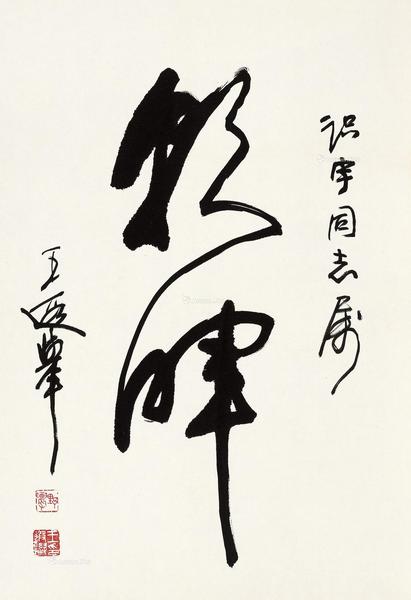 识宇同志属
朝晖
王遐举